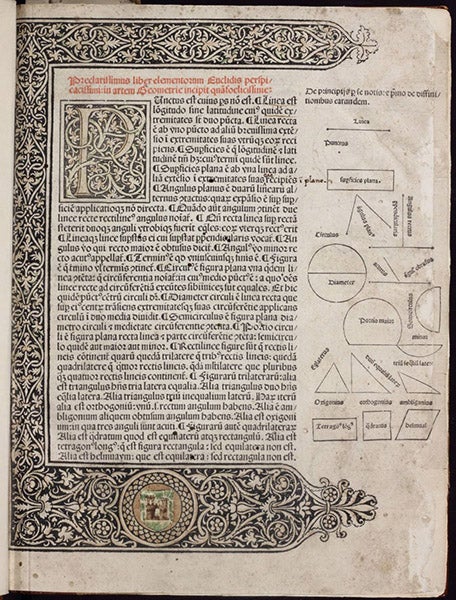 Preclarissimus liber elementorum Euclidis perspi-
cacissimi: in artem Geometrie incipit quāfoelicissime:
Punctus est cuius ps nō est. ¶ Linea est
lōgitudo sine latitudine cui⁹ quidē ex-
tremitates si duo pūcta. ¶ Linea recta
ē ab vno pūcto ad aliū breuissima extē-
sio ī extremitates suas vtrūqȝ eoꝝ reci
piens. ¶ Supficies ē q̄ lōgitudinē ⁊ lati
tudinē tm̄ hȝ: cui⁹ termi quidē sūt linee.
¶ Supficies plana ē ab vna linea ad a-
liā extēsio ī extremitates suas recipiēs
¶ Angulus planus ē duarū linearū al-
ternus ꝯtactus: quaꝝ expāsio ē sup sup-
ficiē applicatioqȝ nō directa. ¶ Quādo aūt angulum ꝯtinēt due
linee recte rectiline⁹ angulus noīat̄. ¶ Qn̄ recta linea sup rectā
steterit duoqȝ anguli vtrobiqȝ fuerit eq̄les: eoꝝ vterqȝ rect⁹ erit
¶ Lineaqȝ linee supstās ei cui supstat ppendicularis vocat̄. ¶ An
gulus vo qui recto maior ē obtusus dicit̄. ¶ Angul⁹ vo minor re
cto acut⁹ appellat̄. ¶ Termin⁹ ē qd vniuscuiusqȝ finis ē. ¶ Figura
ē q̄ tmino vl terminis ꝯtinet̄. ¶ Circul⁹ ē figura plana vna qdem li-
nea ꝯtēta: q̄ circūferentia noīat̄: in cui⁹ medio pūct⁹ ē: a quo oēs
linee recte ad circūferētiā exeūtes sibiinuicez sūt equales. Et hic
quidē pūct⁹ cētrū circuli dr̄. ¶ Diameter circuli ē linea recta que
sup ei⁹ centꝝ trāsiens extremitatesqȝ suas circūferētie applicans
circulū ī duo media diuidit. ¶ Semicirculus ē figura plana dia-
metro circuli ⁊ medietate circūferentie ꝯtenta. ¶ Portio circu-
li ē figura plana recta linea ⁊ parte circūferētie ꝯtēta: semicircu-
lo quidē aut maior aut minor. ¶ Rectilinee figure sūt q̄ rectis li-
neis cōtinent̄ quarū quedā trilatere q̄ trib⁹ rectis lineis: quedā
quadrilatere q̄ quatuor rectis lineis. qdā mltilatere que pluribus
qȝ quatuor rectis lineis continent̄. ¶ Figurarū trilaterarū: alia
est triangulus hn̄s tria latera equalia. Alia triangulus duo hn̄s
eq̄lia latera. Alia triangulus triū inequalium laterū. Haꝝ iterū
alia est orthogoniū: vnū.s. rectum angulum habens. Alia ē am-
bligonium aliquem obtusum angulum habens. Alia est oxigoni
um: in qua tres anguli sunt acuti. ¶ Figurarū autē quadrilateraꝝ
Alia est q̄dratum quod est equilaterū atqȝ rectangulū. Alia est
tetragon⁹ long⁹: q̄ est figura rectangula: sed equilatera non est.
Alia est helmuaym: que est equilatera: sed rectangula non est.
De principijs p se notis: ⁊ pmo de diffini-
tionibus earandem.
Linea
Punctus
ī plana
supficies plana
angulus plan⁹
ppendicularis
angulus rectus
Circulus
Diameter
acutus
Semicirculus
Portio maior
minor
Oxigonius
orthogonius
ambligonius
Tetragon⁹ lōg⁹
q̄dratus
helmuaī